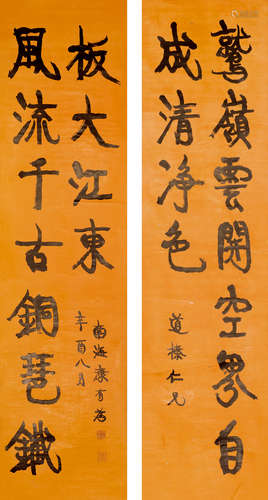 鷲嶺雲開空界自
成清净色
道 仁兄
風流千古銅琶鐵
板大江東
辛酉八月
南海康有為